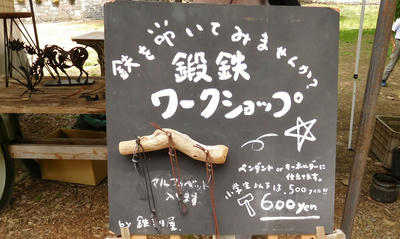 鉄を叩いてみませんか?
鍛鉄
ワークショップ
ペンダント or キーホルダーに
仕立てます。
小学生以下は、500yen!!
600yen
アルファベット
入ります
by 鉄割屋